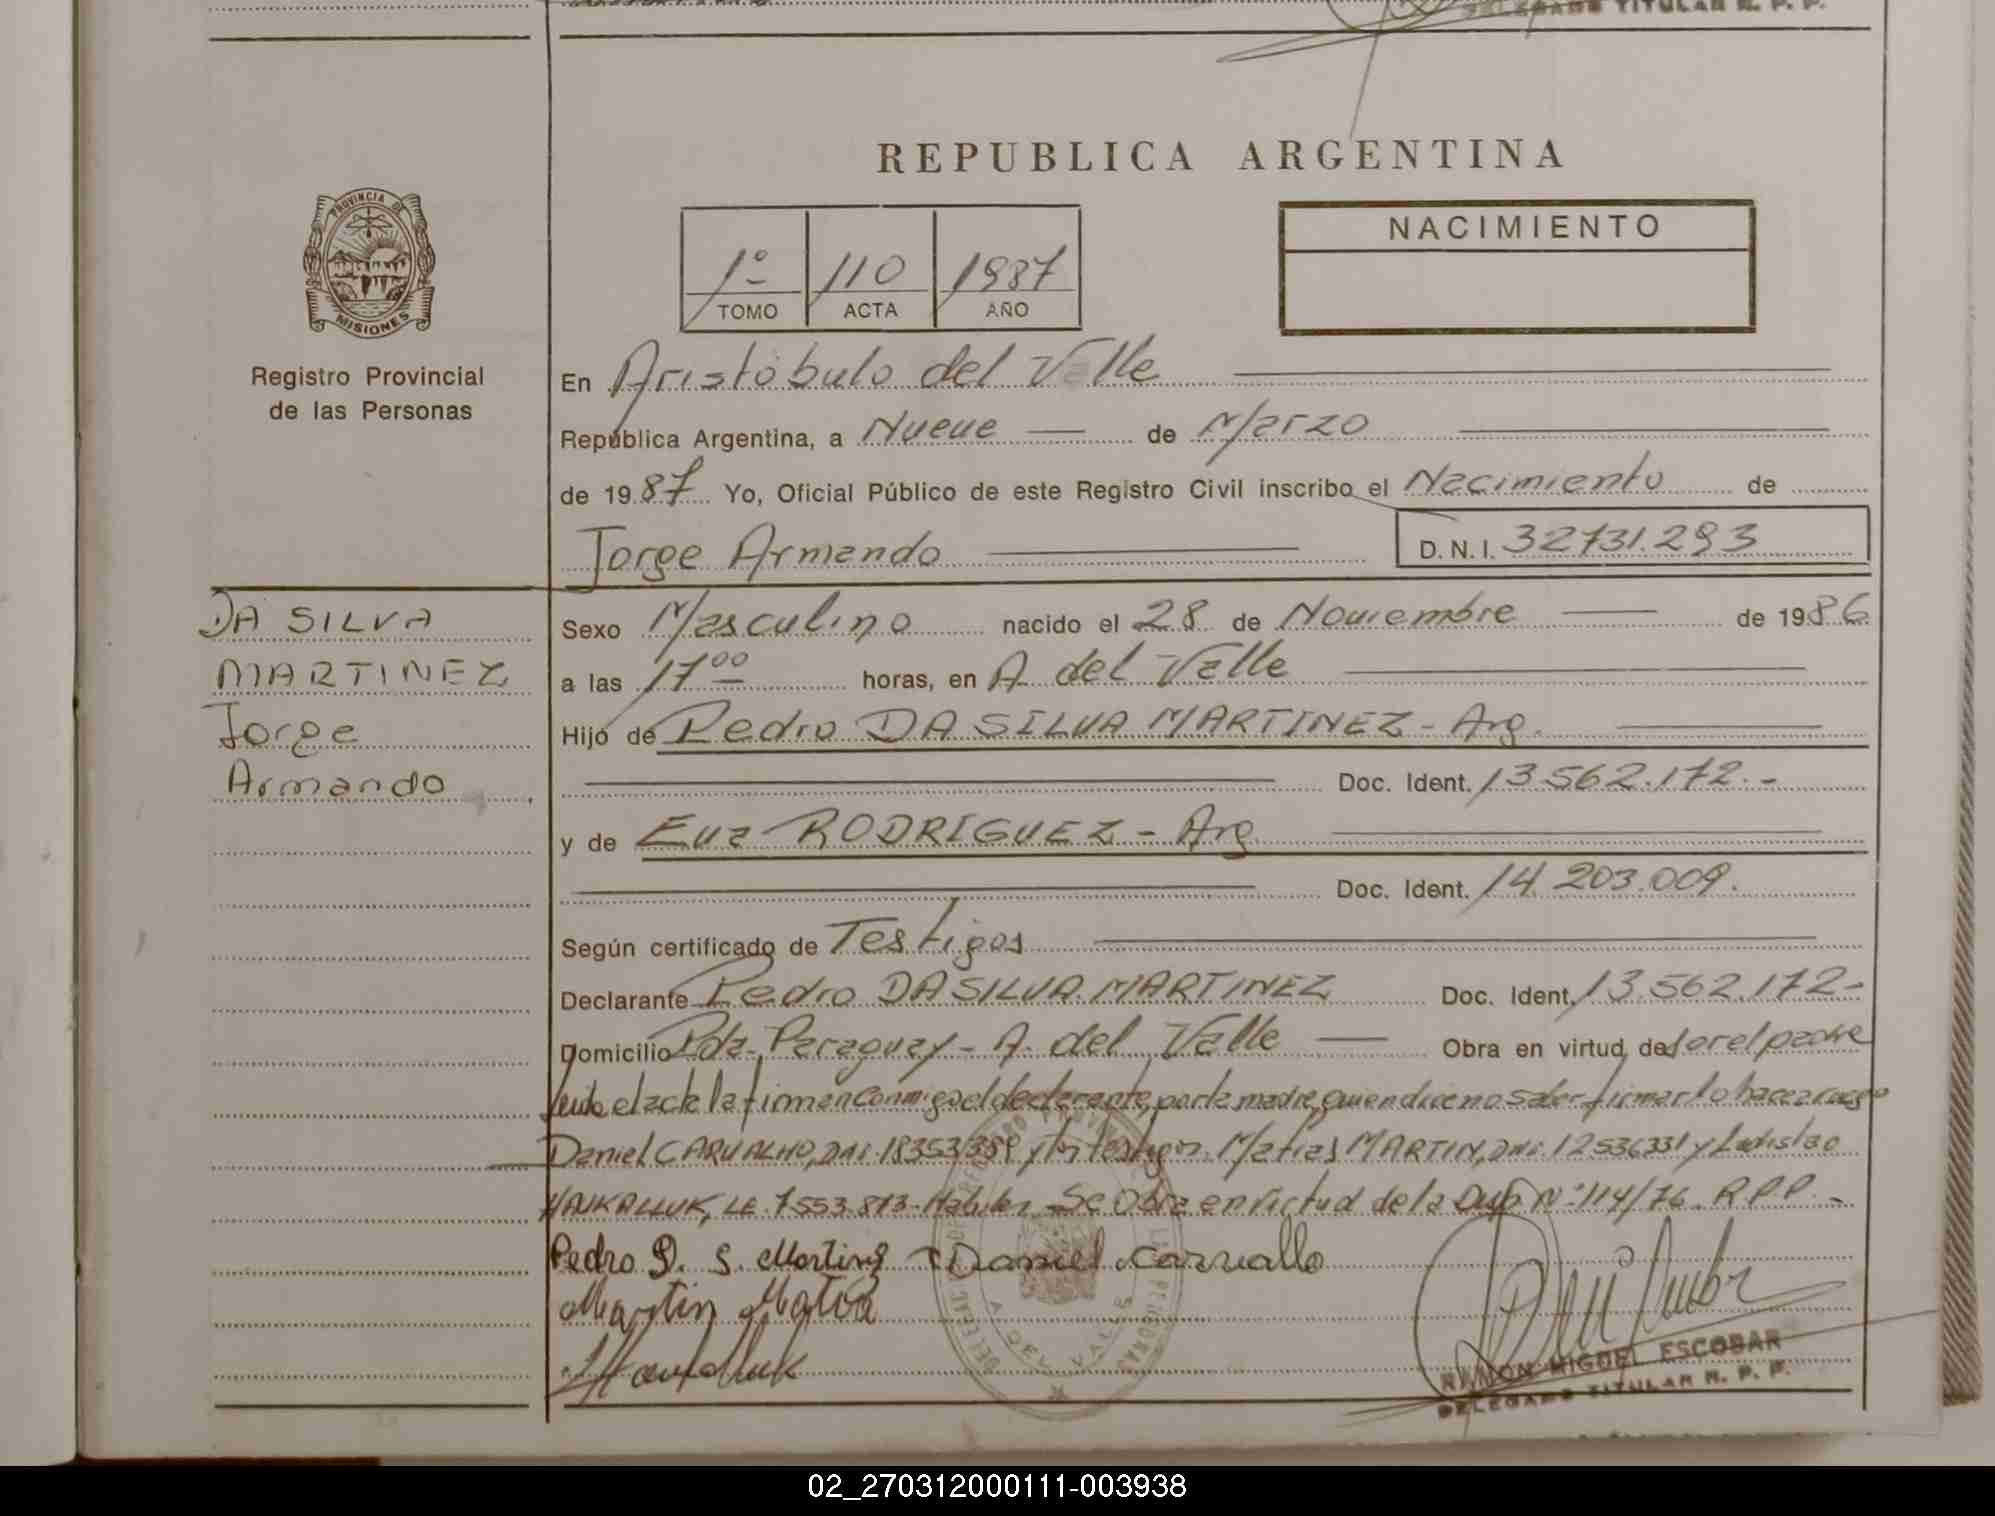 DELEGADO TITULAR R. P. P.
REPUBLICA ARGENTINA
PROVINCIA DE
MISIONES
Registro Provincial
de las Personas
1° TOMO
110 ACTA
1987 AÑO
NACIMIENTO
En Aristóbulo del Valle
República Argentina, a Nueve de Marzo
de 1987 Yo, Oficial Público de este Registro Civil inscribo el Nacimiento de
Jorge Armando D. N. I. 32731.293
DA SILVA
MARTINEZ
Jorge
Armando
Sexo Masculino nacido el 28 de Noviembre de 1986
a las 17 00 horas, en A. del Valle
Hijo de Pedro DA SILVA MARTINEZ - Arg.
Doc. Ident. 13.562.172.-
y de Eva RODRIGUEZ - Arg
Doc. Ident. 14.203.009.
Según certificado de Testigos
Declarante Pedro DA SILVA MARTINEZ Doc. Ident. 13.562.172-
Domicilio Pda. Paraguay - A. del Valle Obra en virtud de Ser el padre
leida el acta la firman conmigo el declarante, por la madre quien dice no saber firmar lo hace a ruego
Daniel CARVALHO, DNI. 18353389 y los testigos. Matias MARTIN, DNI. 12536331 y Ladislao
LE. 7553.873- Se Obra en virtud de la Disp N° 114/76. R.P.P.-
Pedro D. S. Martins Daniel Carvallo
Martin Matia
RAMON MIGUEL ESCOBAR
DELEGADO TITULAR R. P. P.
A. DEL VALLE
02_270312000111-003938